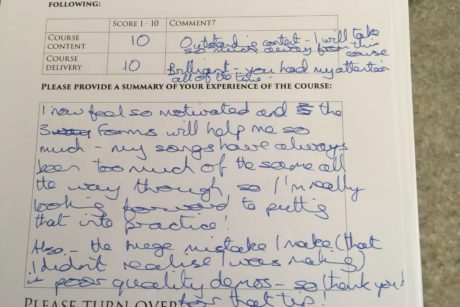 FOLLOWING:
SCORE 1 - 10 COMMENT?
COURSE CONTENT 10 Outstanding content - I will take so much away from this course
COURSE DELIVERY 10 Brilliant - you had my attention all of the time!
PLEASE PROVIDE A SUMMARY OF YOUR EXPERIENCE OF THE COURSE:
I now feel so motivated and the
3 forms will help me so
much - my songs have always
been too much of the same all
the way though so I'm really
looking forward to putting
that into practice!
Also - the huge mistake I make (that
I didn't realise I was making)
is poor quality demos - so thank you
for that tip!
PLEASE TURN OVER